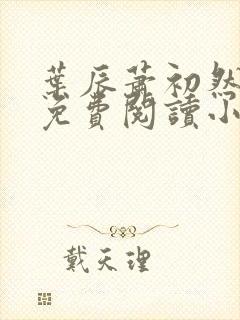 葉辰蕭初然
免費閱讀小
戴天理